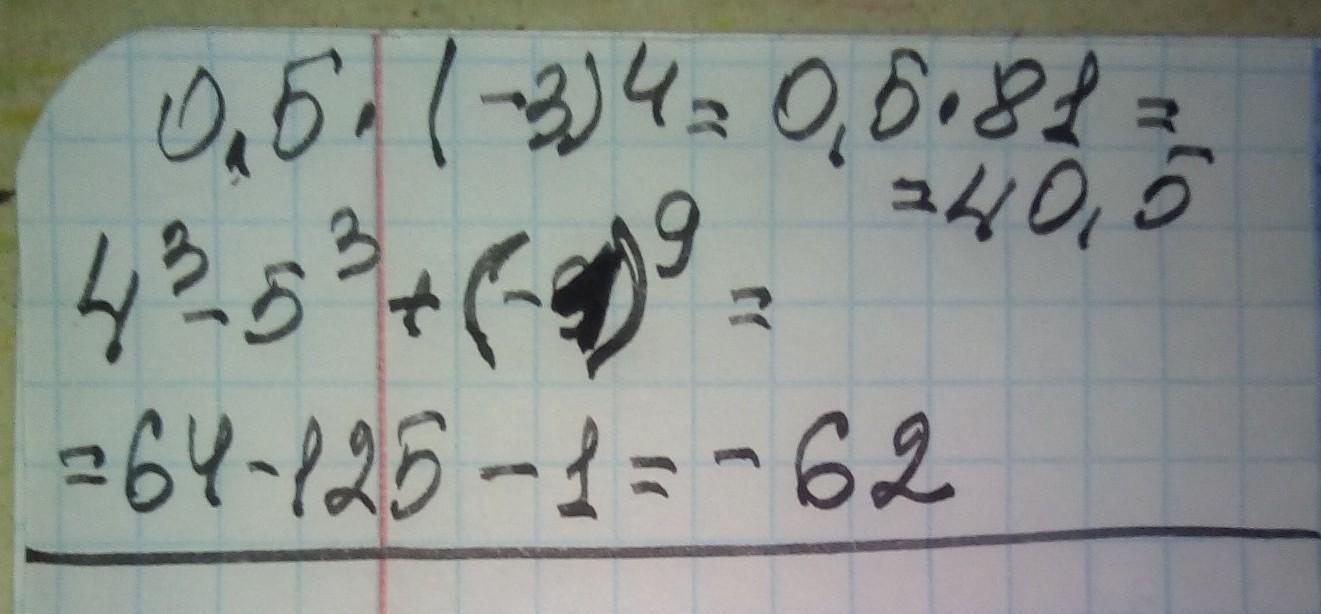 0,5 · (-3)⁴ = 0,5 · 81 =
= 40,5
4³ - 5³ + (-1)⁹ =
= 64 - 125 - 1 = - 62